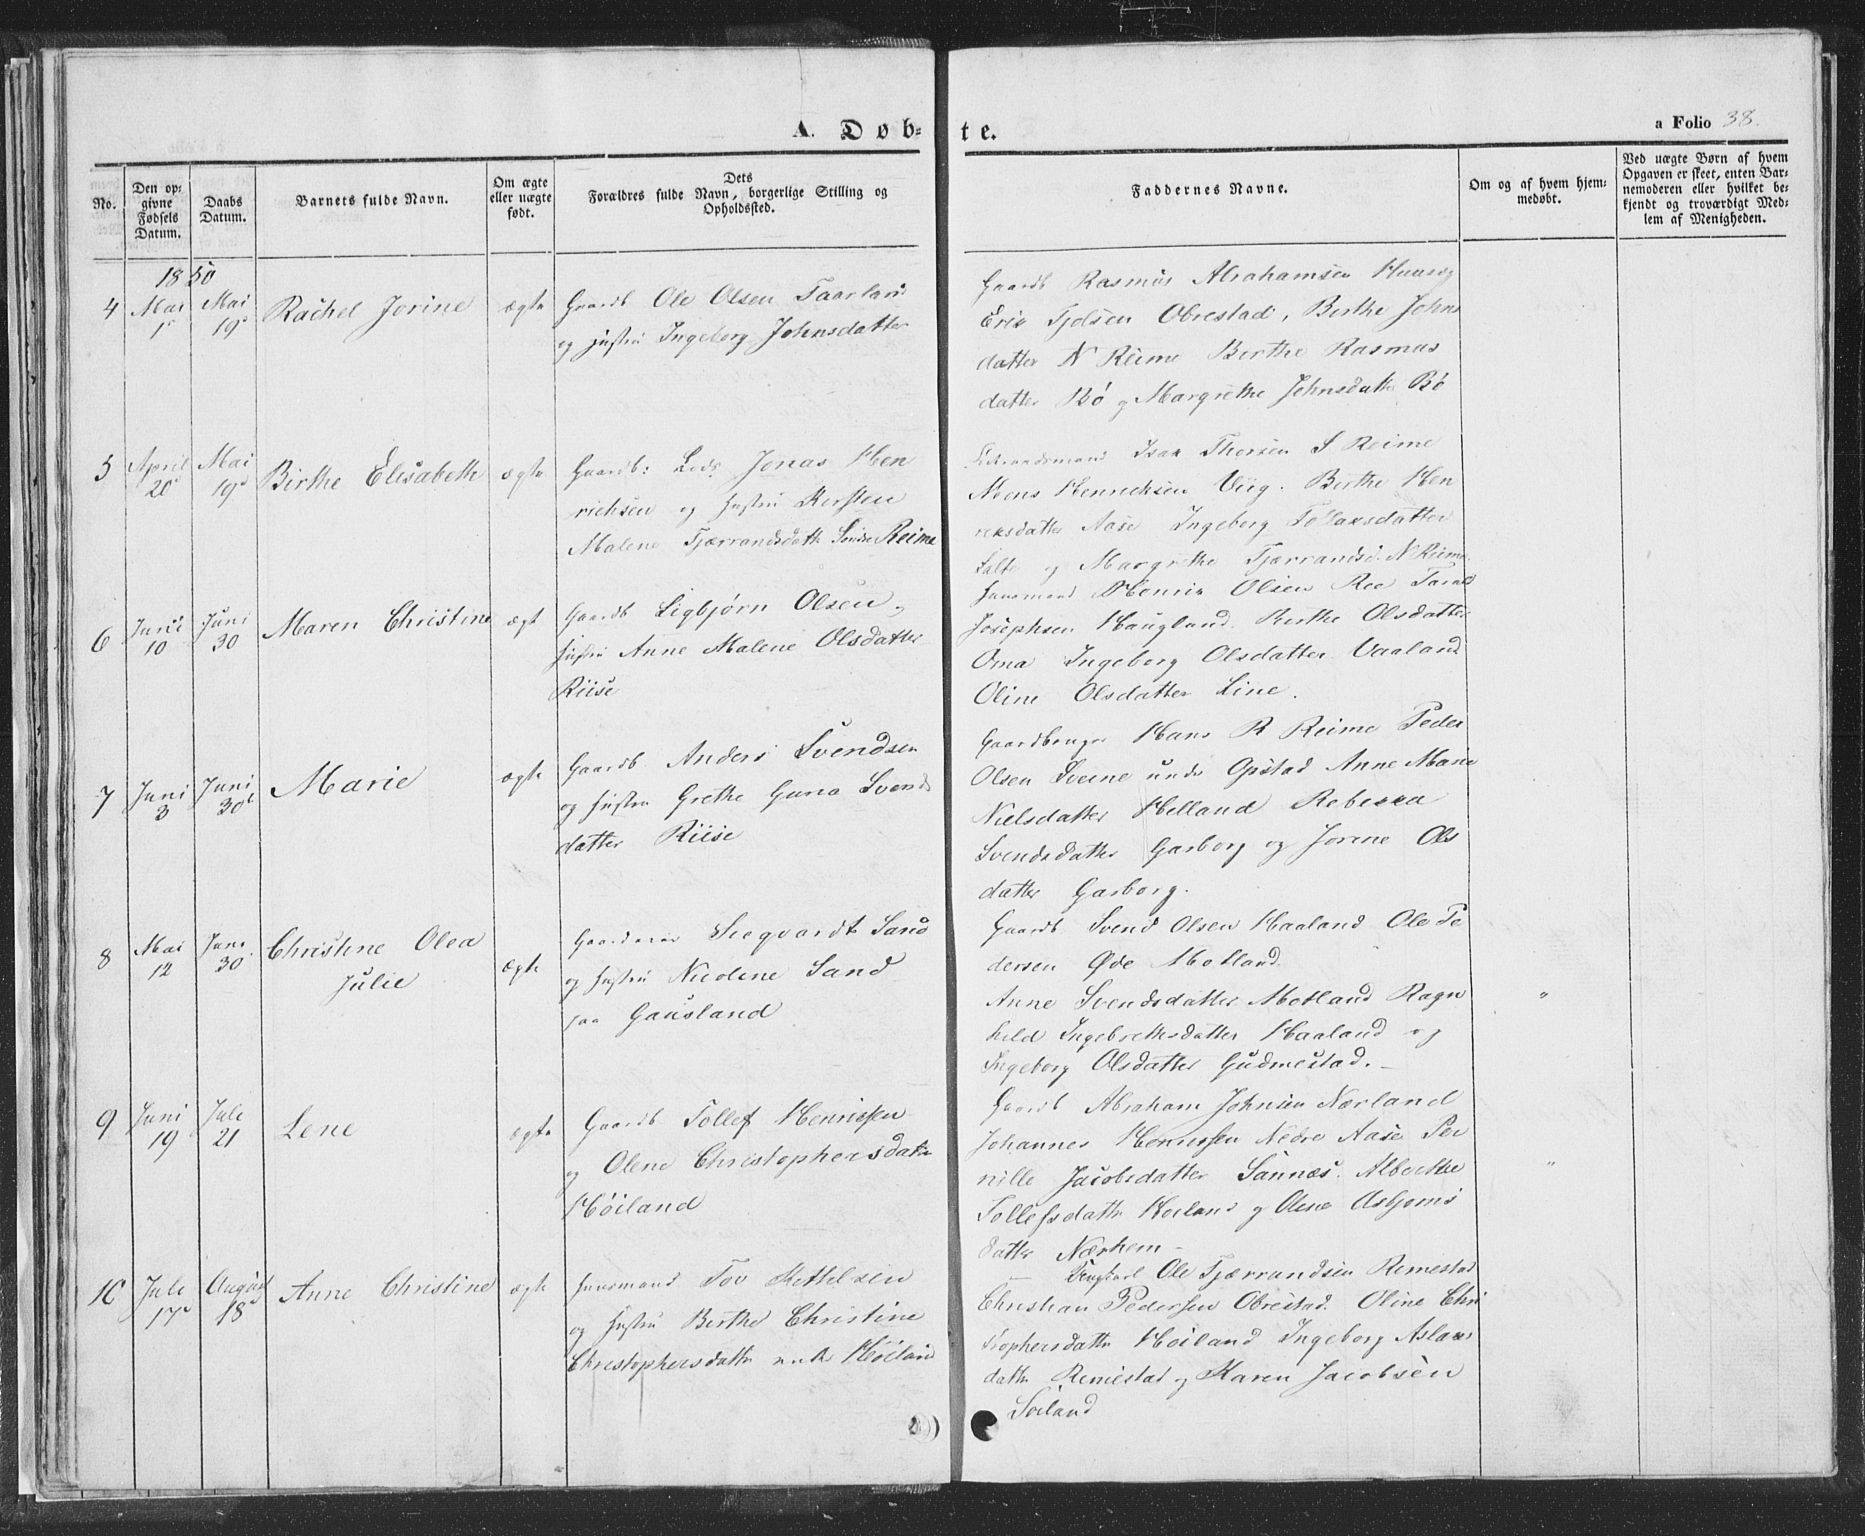 A. Døb=
te.
a Folio 38.
No.
Den op=
givne
Fødsels
Datum.
Daabs
Datum.
Barnets fulde Navn.
Om ægte
eller uægte
født.
Dets
Forældres fulde Navn, borgerlige Stilling og
Opholdssted.
Faddernes Navne.
Om og af hvem hjem=
medøbt.
Ved uægte Børn af hvem
Opgaven er skeet, enten Bar=
nemoderen eller hvilket be=
kjendt og troværdigt Med=
lem af Menigheden.
1850
4
Mai
1
Mai
19
Rachel Jorine
ægte
Gaardb Ole Olsen Taarland
og hustru Ingeborg Johnsdatter
Gaardb Rasmus Abrahamsen
Eric Tjølsen Obrestad, Berthe Johns
datter N Reime Berthe Rasmus
datter Bø og Margrethe Johnsdatt Bø
5
April
20
Mai
19
Birthe Elisabeth
ægte
Gaardb: Lods Jonas Hen
richsen og hustru Kersten
Malene Tjærrandsdatt Søndre Reime
Isak Thorsen S Reime
Mons Henrichsen Viig. Berthe Hen
reksdatter Aase Ingeborg Tollaksdatter
Salte og Margrethe Tjærrandsd. N Reime
6
Juni
10
Juni
30
Maren Christine
ægt
Gaardb Sigbjørn Olsen og
hustru Anne Malene Olsdatter
Riise
Huusmand Henrik Olsen Ree Tarald
Josephsen Haugland. Berthe Olsdatter
Oma Ingeborg Olsdatter Vaaland
Oline Olsdatter Line.
7
Juni
3
Juni
30
Marie
ægte
Gaardb. Anders Svendsen
og hustru Grethe Guro Svends
datter Riise
Gaardbruger Hans R Reime Peder
Olsen Sveine under Opstad Anne Marie
Nielsdatter Helland Rebekka
Svendsdatter Garborg og Jorine Ols
datter Garborg.
8
Mai
12
Juni
30
Christine Olea
Julie
ægte
Gaardeier Siegvardt Sand
og hustru Nicoline Sand
paa Gausland
Gaardb Svend Olsen Haaland Ole Pe
dersen Øde Motland
Anne Svendsdatter Motland Ragn
hild Ingebrethsdatter Haaland og
Ingeborg Olsdatter Gudmestad.
"
9
Juni
19
Juli
21
Lene
ægte
Gaardb Tollef Henriksen
og Olene Christophersdatter
Høiland
Gaardb Abraham Johnsen Nærland
Johannes Henriksen Nedre Aase Per
nille Jacobsdatter Sannæs. Alberthe
Tollefsdatter Høiland og Olene Asbjørns
datter Nærhem
"
10
Juli
17
August
18
Anne Christine
ægte
Huusmand Tov Kettelsen
og hustru Berthe Christine
Christophersdatter Høiland
Ungkarl Ole Tjærrandsen Rimestad
Christian Pedersen Obrestad. Oline Chri
stophersdatter Høiland Ingeborg Aslaks
datter Rimestad og Karen Jacobsen
Søiland